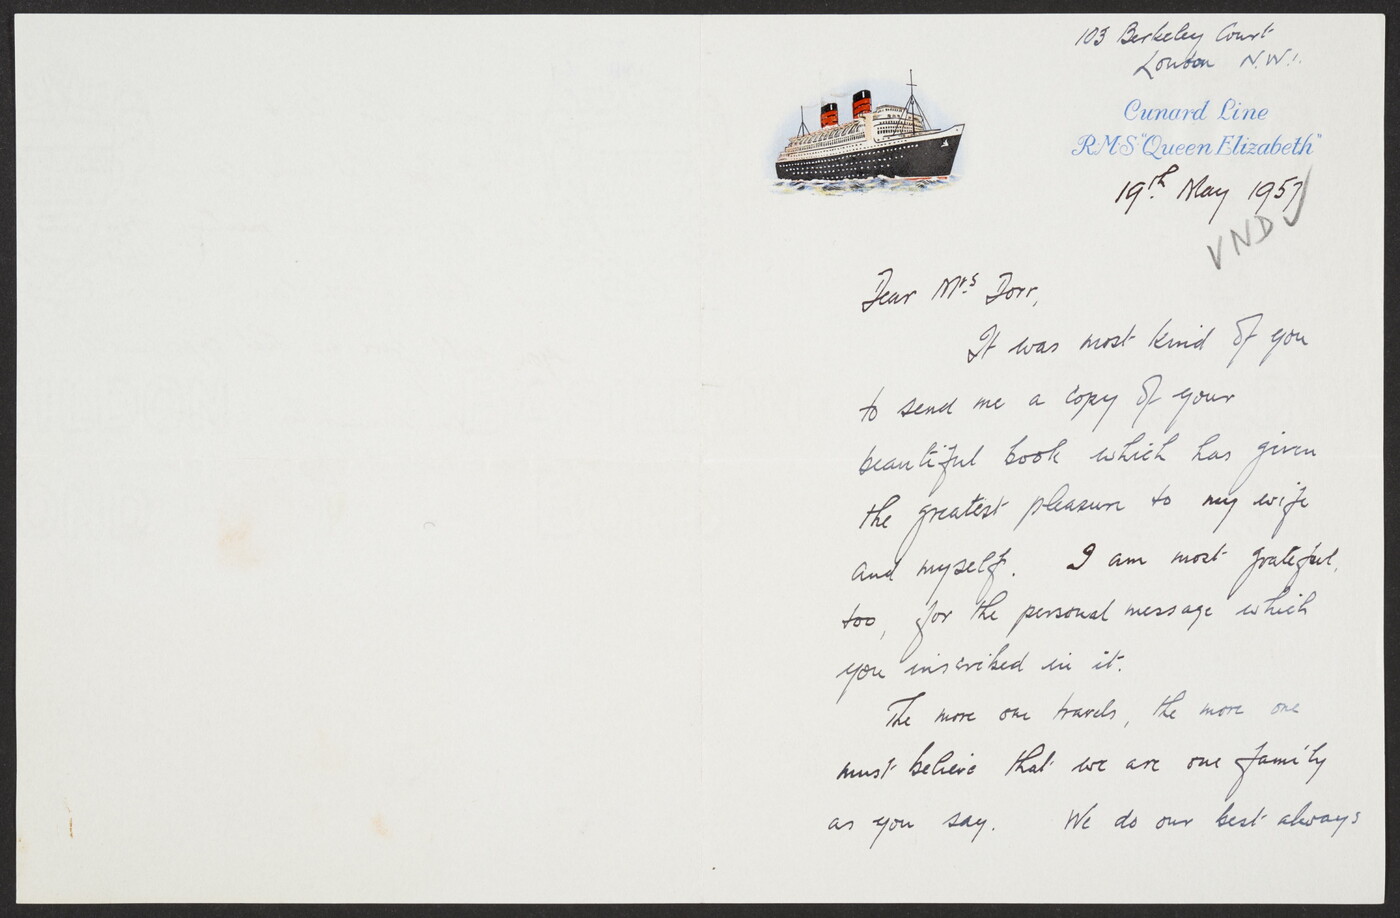 103 Berkeley Court
London N.W.1.
Cunard Line
RMS "Queen Elizabeth"
19th May 1957
VND
Dear Mrs Dorr,
It was most kind of you
to send me a copy of your
beautiful book which has given
the greatest pleasure to my wife
and myself. I am most grateful,
too, for the personal message which
you inscribed in it.
The more one travels, the more one
must believe that we are one family
as you say. We do our best always